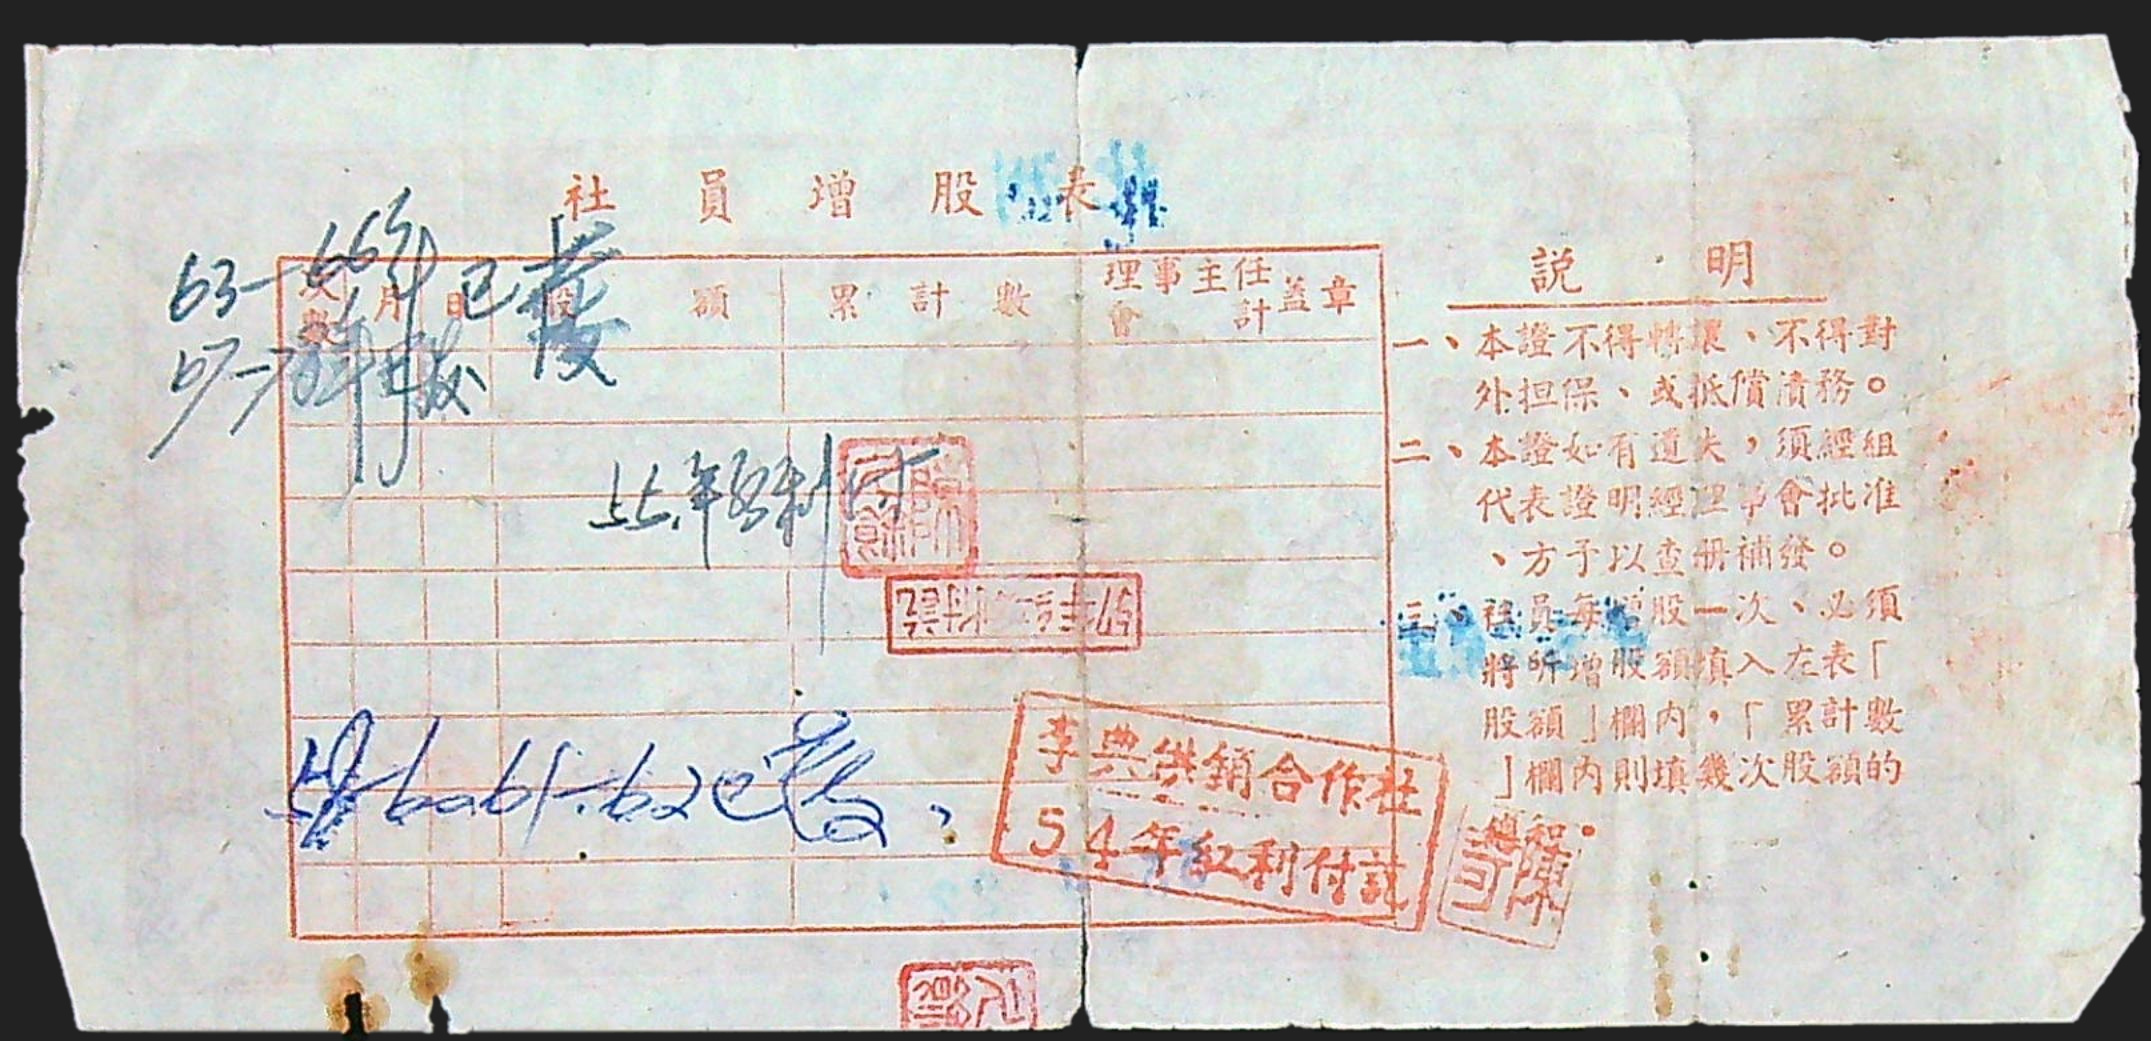 社員增股表
次數 月 日 股額 累計數 理事會主任會計蓋章
63-66年已發
67-70年
55年紅利付
李典供銷合作社
54年紅利付訖
60.61.62已發
說明
一、本證不得轉讓、不得對
外担保、或抵償債務。
二、本證如有遺失，須經組
代表證明經理事會批准
、方予以查册補發。
三、社員每增股一次、必須
將所增股額填入左表「
股額」欄内，「累計數
」欄内則填幾次股額的
總和。